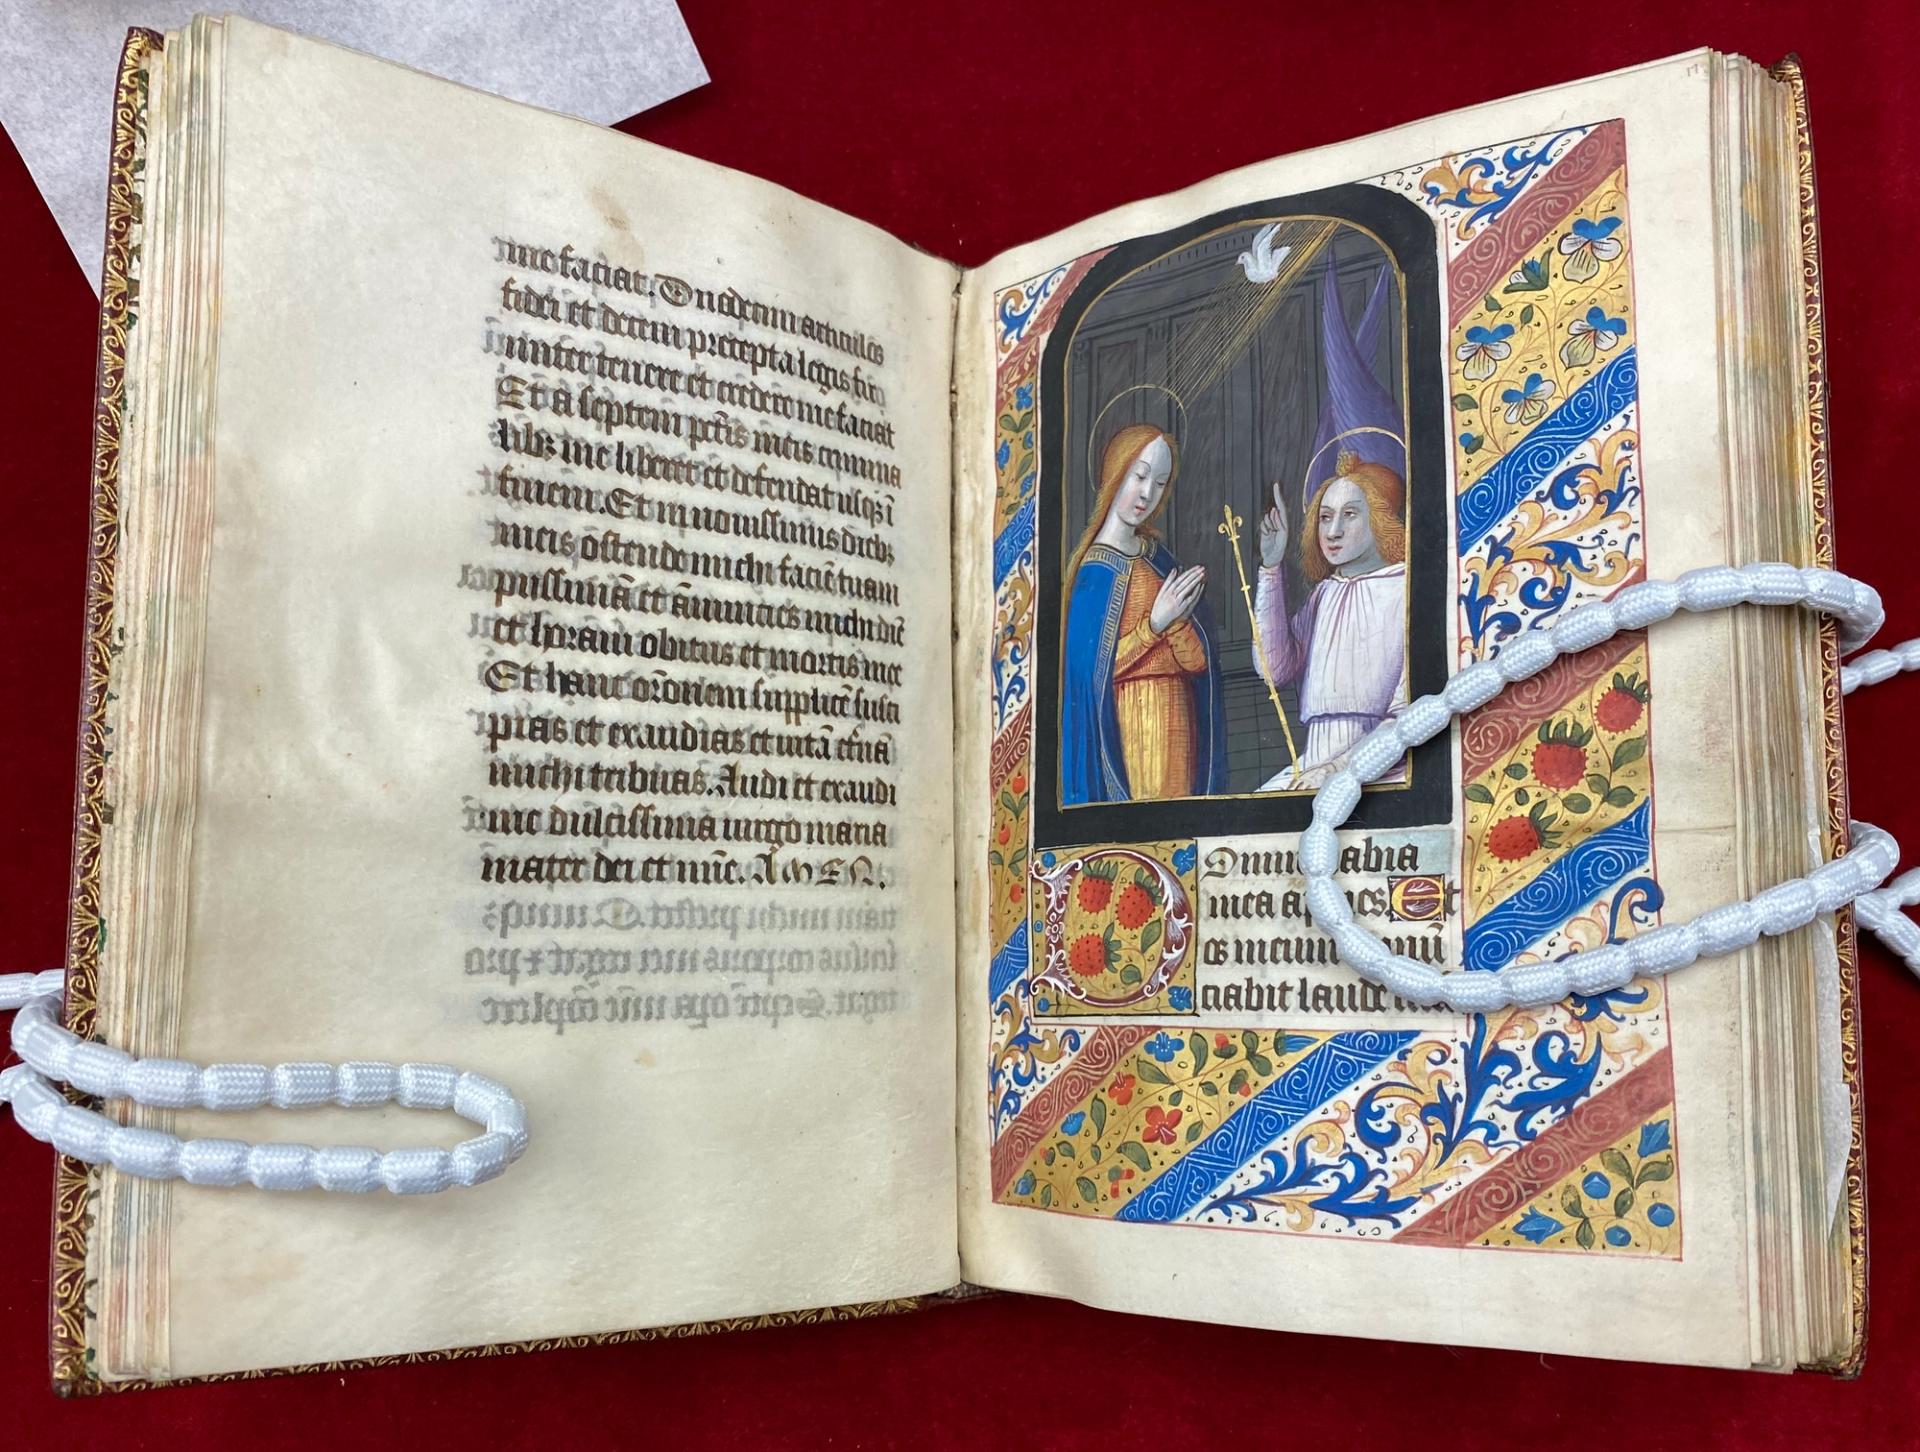 me faciat. Duodecim articulos
fidei et decem precepta legis firo
miter tenere et credere me faciat
Et a septem pctis meis crimina
libꝫ me liberet et defendat usqꝫ ī
finem. Et in nouissimis diebꝫ
meis ostende michi faciē tuam
piissimā et ānuncies michi diē
et horam obitus et mortis mee
Et hanc orōnem supplicē susci
pias et exaudias et uitā etnā
michi tribuas. Audi et exaudi
me dulcissima uirgo maria
mater dei et mīe. AMEN.
17
Domine labia
mea aperies. Et
os meum
ciabit laudē